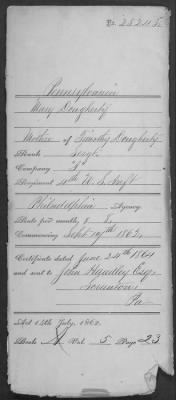 Pennsylvania
Mary Dougherty
Mother of Timothy Dougherty
Rank Sergt
Company
Regiment 4th U. S. Inft
Philadelphia Agency
Rate per month, 8
Commencing Sept 17th 1862
Certificate dated June 24th 1864
and sent to John Handley Esq.
Scranton
Pa
Act 14th July, 1862.
Book A Vol. 5 Page 23